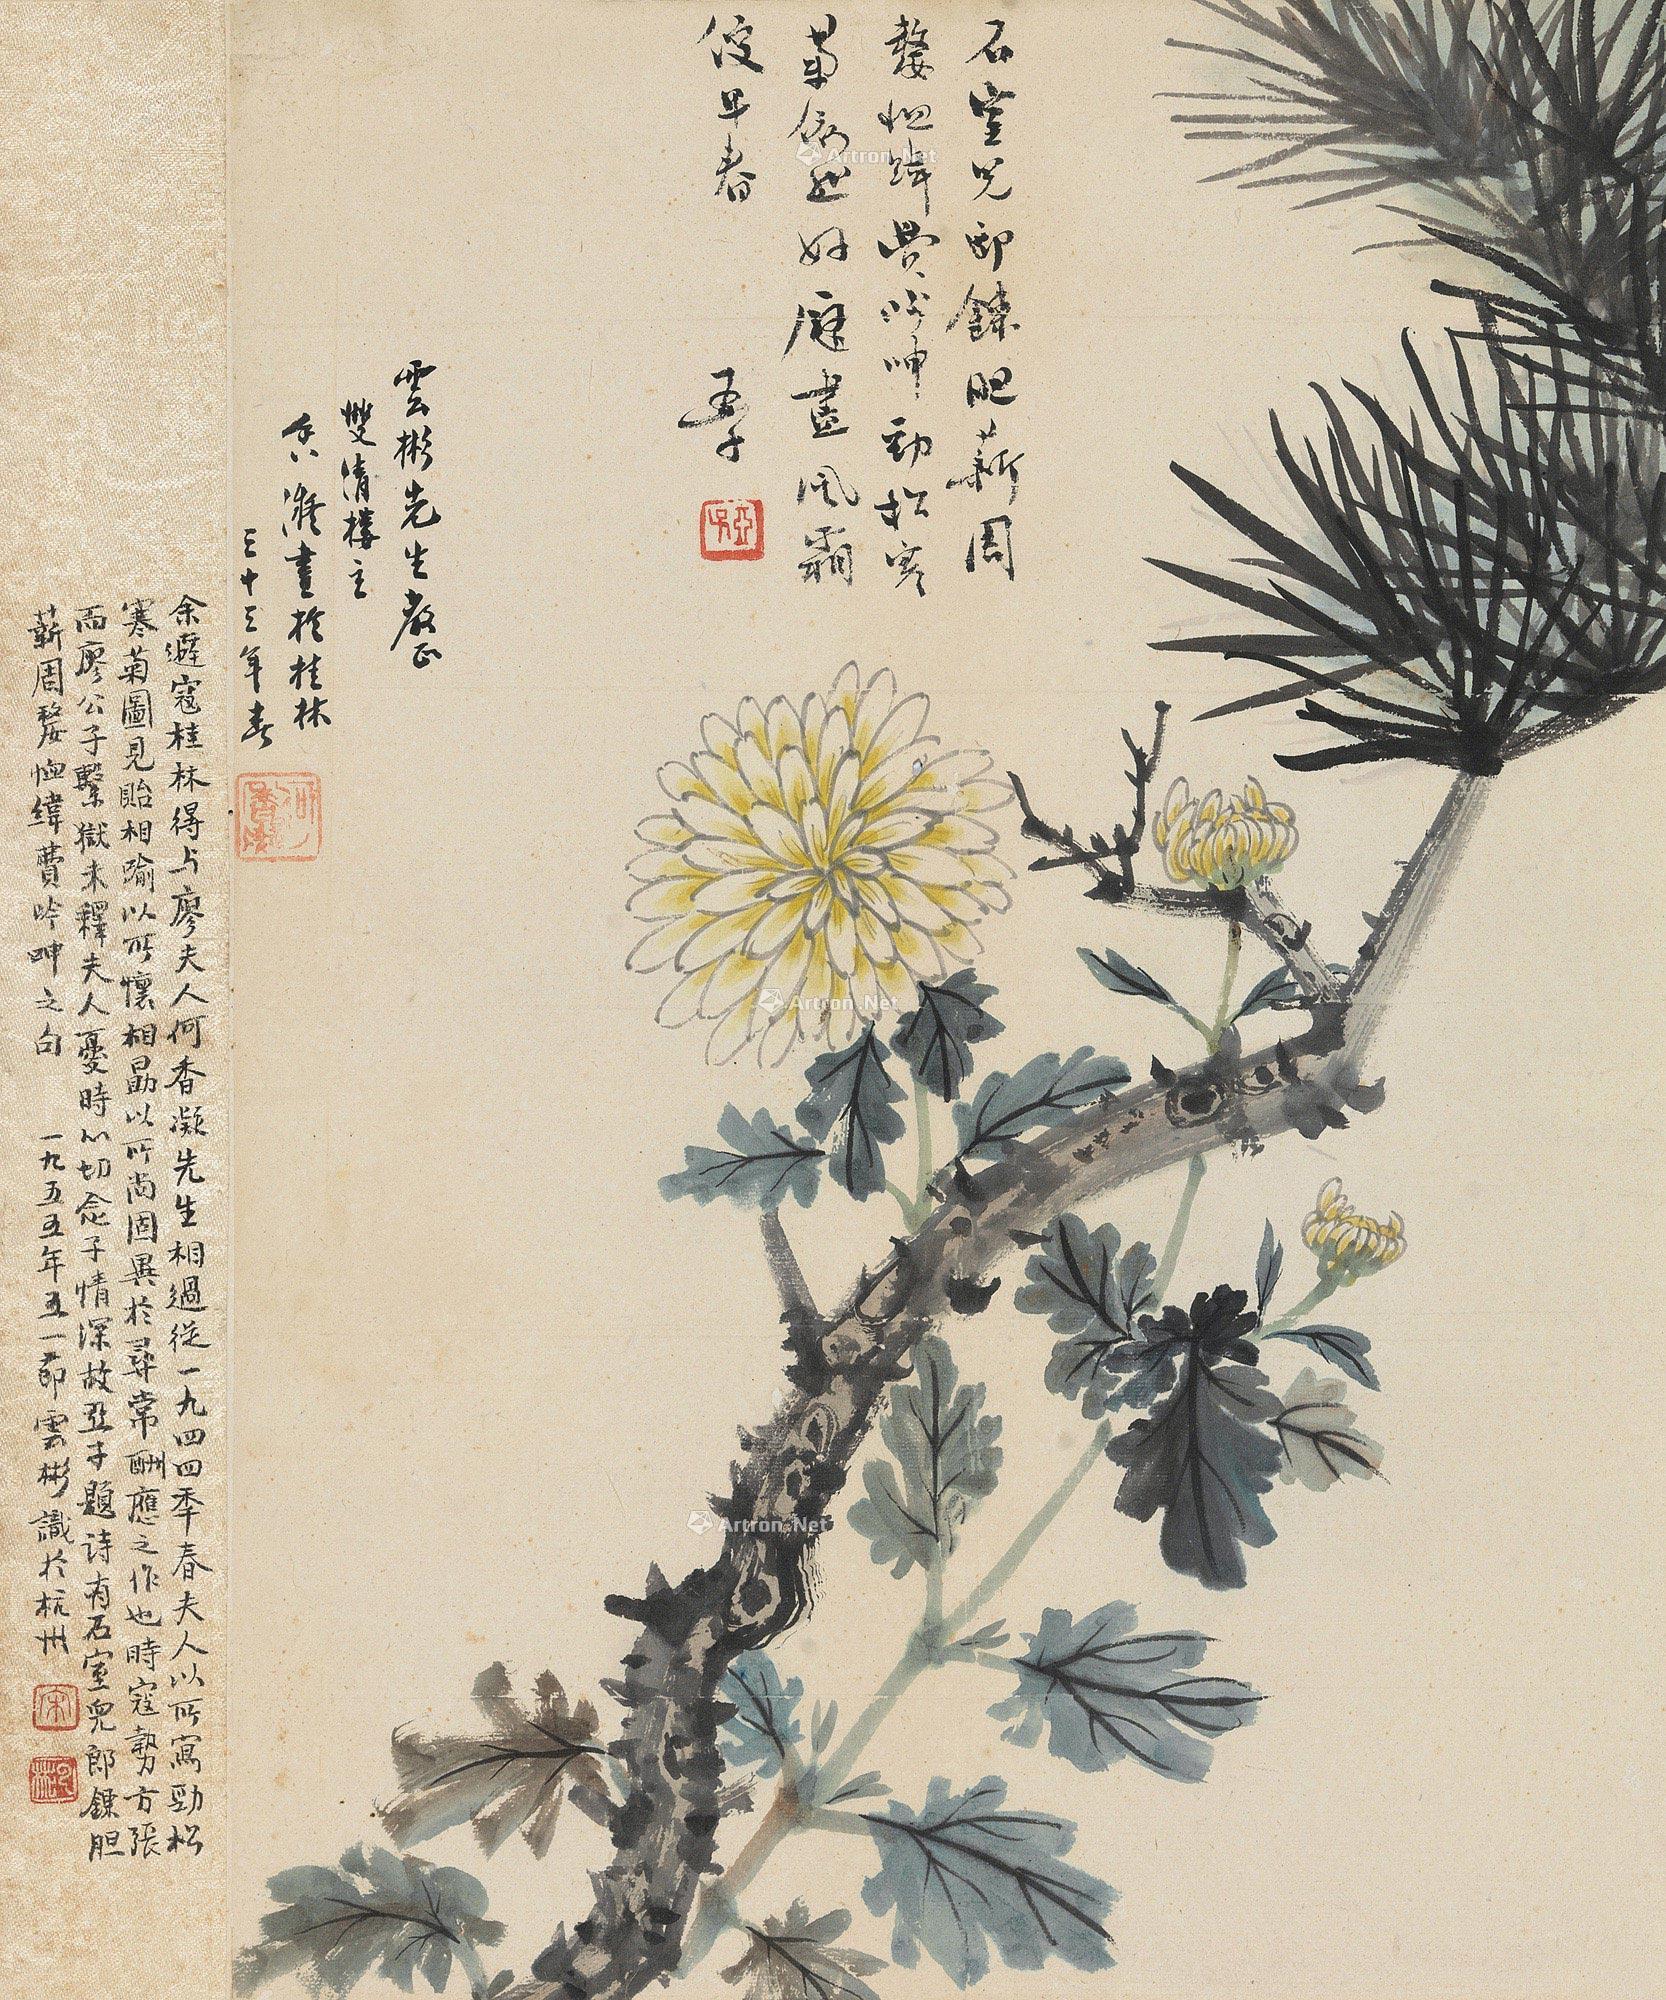 石室児郎鍊胆薪周
嫠恤緯費吟呻勁松寒
菊誰好尽風霜
後早春
亞子
雲彬先生教正
雙清樓主
香凝畫於桂林
三十三年春
余避寇桂林得与廖夫人何香凝先生相過從一九四四年春夫人以所寫勁松
寒菊圖見貽相喻以所懷相勗以所尚固異於尋常酬應之作也時寇勢方張
而廖公子繫獄未釋夫人憂時心切念子情深故亞子題诗有石室児郎鍊胆
薪周嫠恤緯費吟呻之句 一九五五年五一節雲彬識於杭州
Artron.Net
Artron.Net
Artron.Net